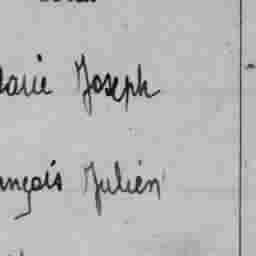 arie Joseph
ançois Julien